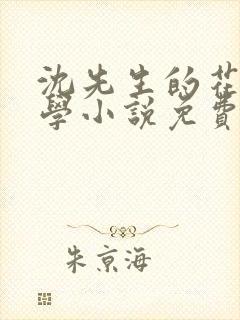 沈先生的花
學小説免費
朱京海